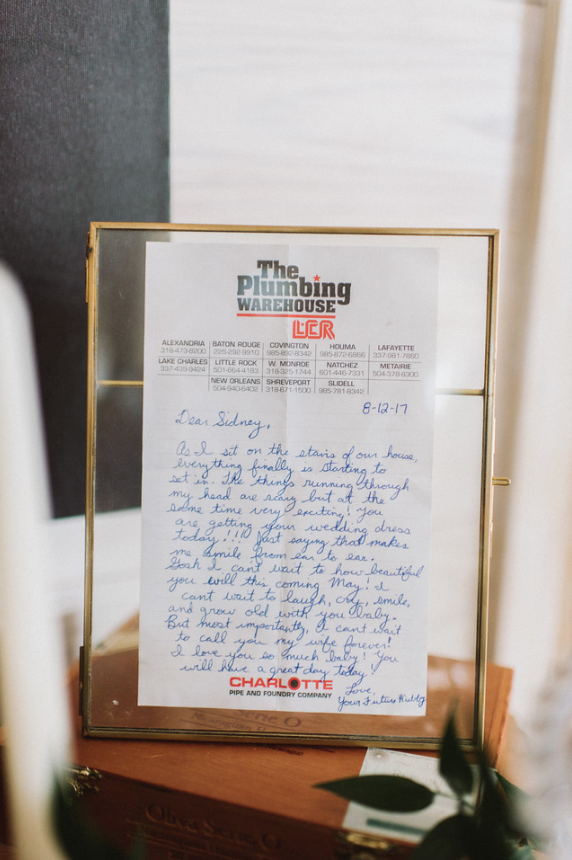 The
Plumbing
WAREHOUSE
LCR
ALEXANDRIA BATON ROUGE COVINGTON HOUMA LAFAYETTE
318-473-8200 225-292-9910 985-892-8342 985-872-6866 337-981-7860
LAKE CHARLES LITTLE ROCK W. MONROE NATCHEZ METAIRIE
337-439-9424 501-664-4183 318-325-1744 601-446-7331 504-378-8300
NEW ORLEANS SHREVEPORT SLIDELL
504-940-6402 318-671-1500 985-781-8342
8-12-17
Dear Sidney,
As I sit on the stairs of our house,
everything finally is starting to
set in. The things running through
my head are scary but at the
same time very exciting! You
are getting your wedding dress
today!!! Just saying that makes
me smile from ear to ear.
Gosh I cant wait to how beautiful
you will this coming May! I
cant wait to laugh, cry, smile,
and grow old with you baby.
But most importantly, I cant wait
to call you my wife forever!
I love you so much baby! You
will have a great day today!
CHARLOTTE
PIPE AND FOUNDRY COMPANY
Love,
Your Future Hubby
Oliva Serie O